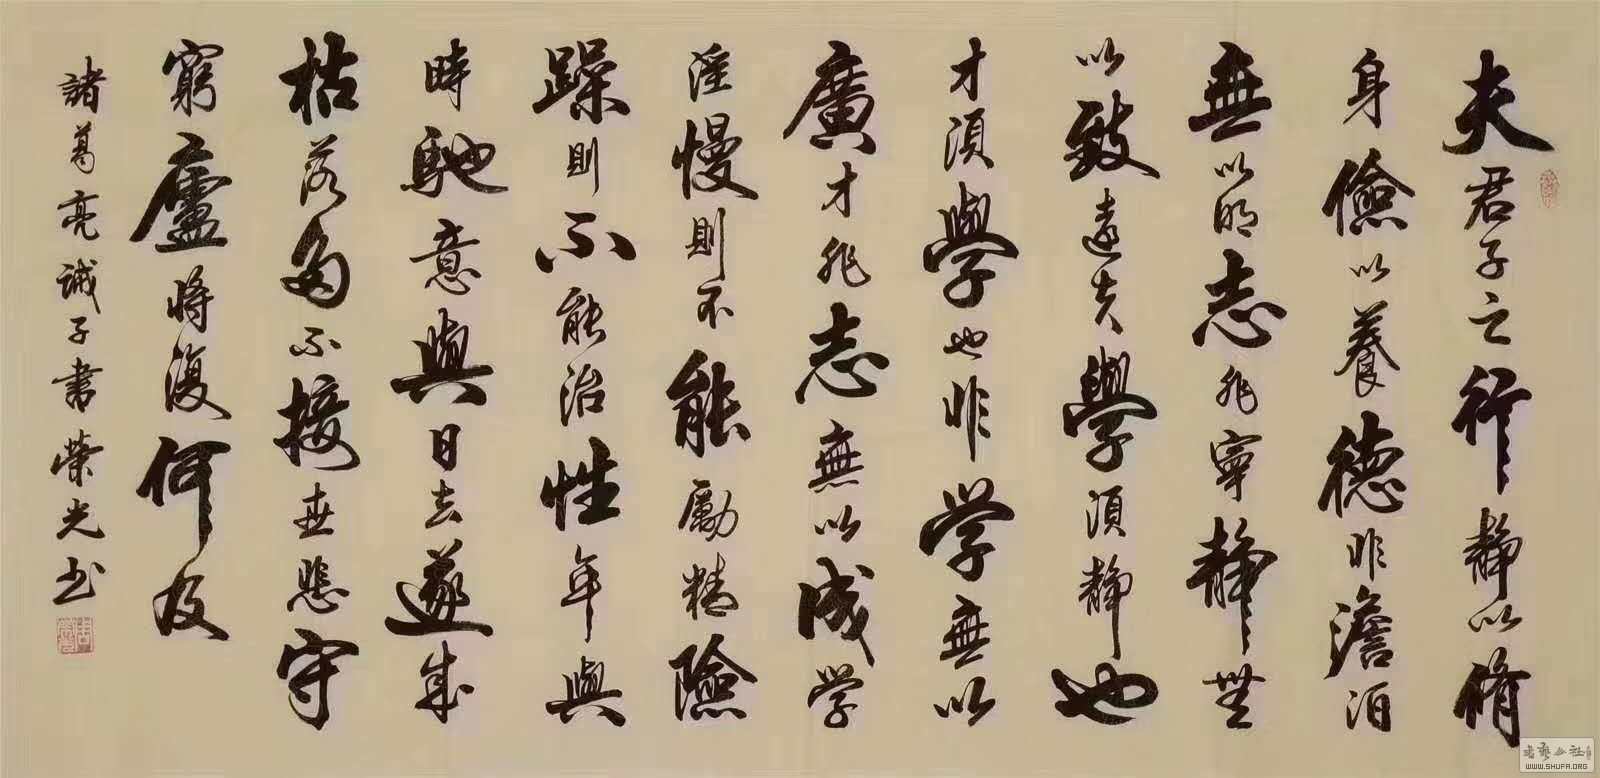 夫君子之行静以脩
身儉以養德非澹泊
無以明志非寧静無
以致遠夫學須静也
才須學也非学無以
廣才非志無以成学
淫慢則不能勵精險
躁則不能治性年與
時馳意與日去遂成
枯落多不接世悲守
窮廬將復何及
諸葛亮誡子書 榮光书
書藝公社
WWW.SHUFA.ORG